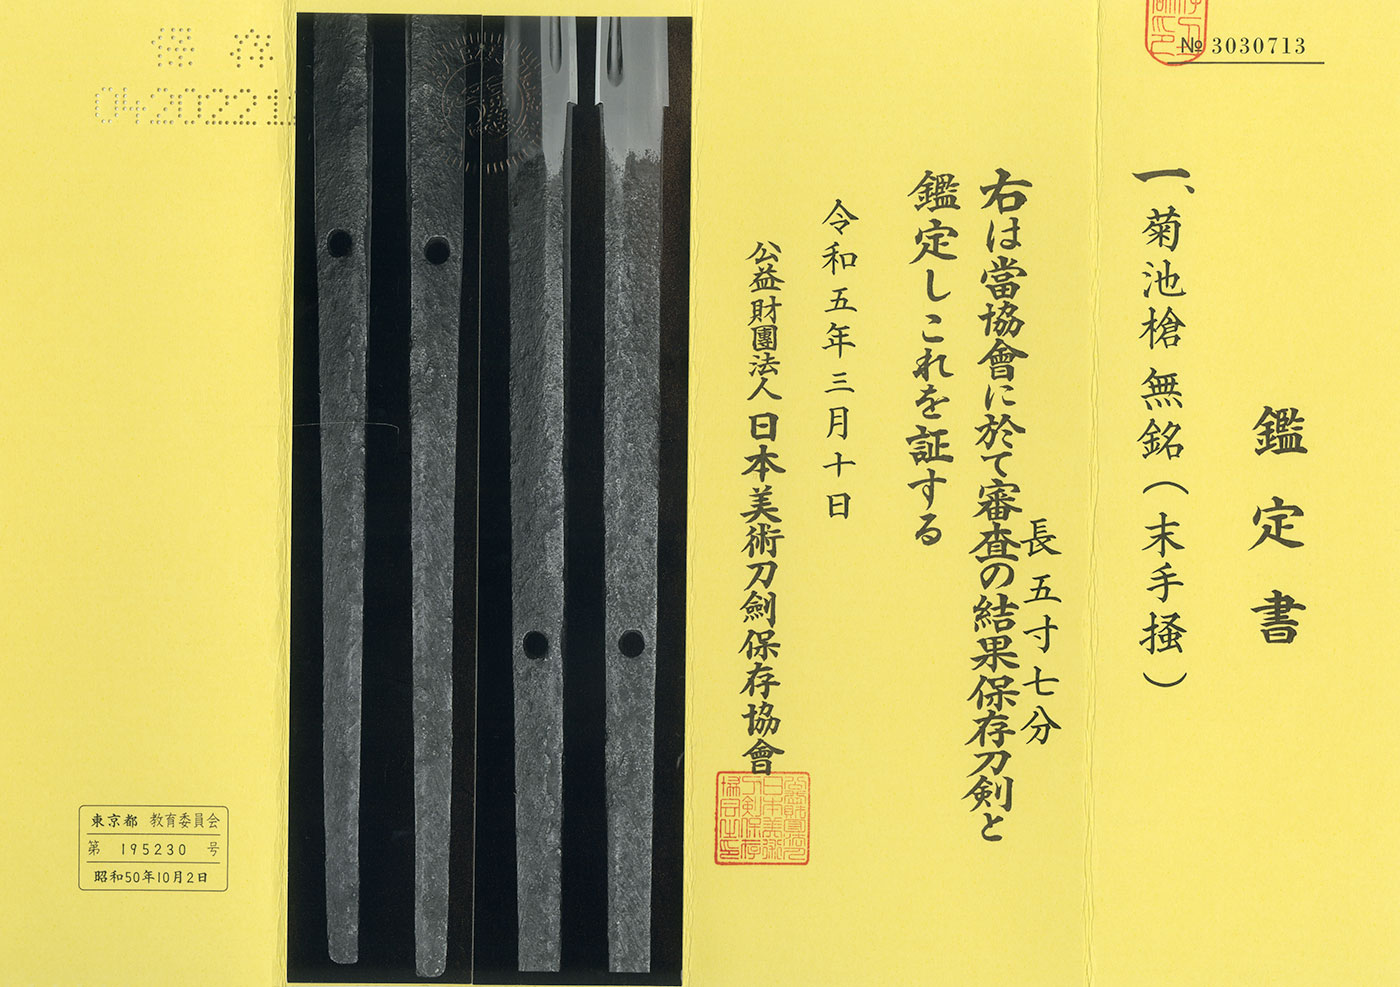 № 3030713
鑑定書
一、菊池槍 無銘（末手掻）
長 五寸七分
右は當協會に於て審査の結果保存刀剣と
鑑定しこれを証する
令和五年三月十日
公益財團法人 日本美術刀劍保存協會
保存
0420221
東京都 教育委員会
第 195230 号
昭和50年10月2日